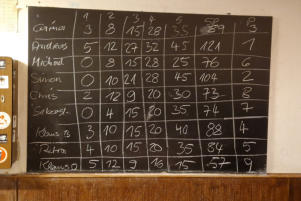 1 2 3 4 5 P
3 8 15 28 35 89 3
Andreas 5 12 27 32 45 121 1
Michael 0 8 15 28 25 76 6
Simon 0 10 21 28 45 104 2
Chris 2 12 9 20 30 73 8
Sebast. 0 4 15 20 35 74 7
Klaus B 3 10 15 20 40 88 4
Petra 4 10 15 20 35 84 5
Klaus D 5 12 9 16 15 57 9